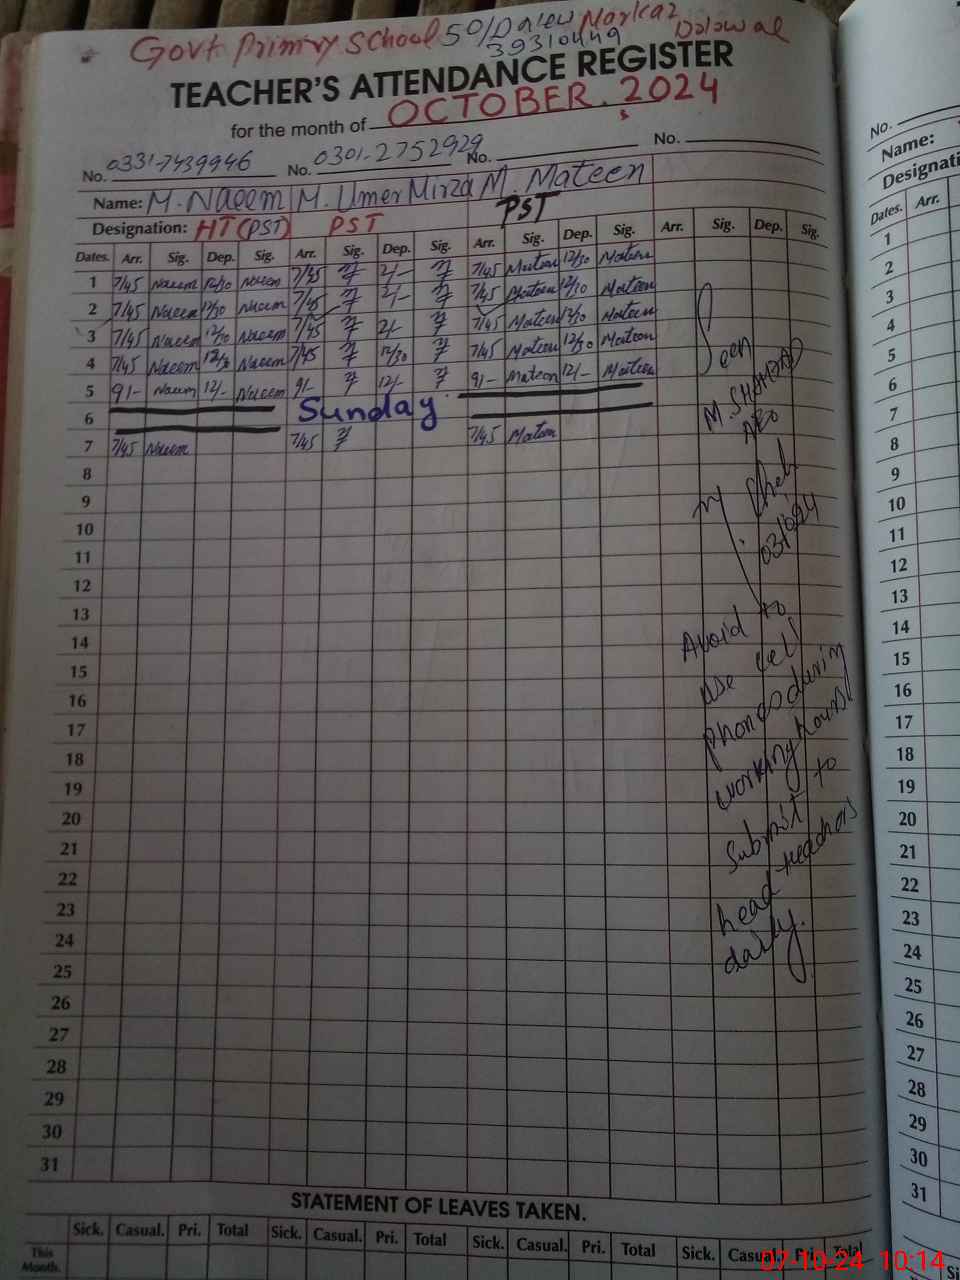 Govt Primary School 50/D new Markaz Dolowal
39310449
TEACHER'S ATTENDANCE REGISTER
for the month of OCTOBER. 2024
No. 0331-7439946 No. 0301-2752929 No. No.
Name: M. Naeem M. Umer Mirza M. Mateen
Designation: HT (PST) PST PST
Dates. Arr. Sig. Dep. Sig. Arr. Sig. Dep. Sig. Arr. Sig. Dep. Sig. Arr. Sig. Dep. Sig.
1 7/45 Naeem 12/30 Naeem 7/45 2/- 7/45 Mateen 12/30 Mateen
2 7/45 Naeem 12/30 Naeem 7/45 2/- 7/45 Mateen 12/30 Mateen
3 7/45 Naeem 12/30 Naeem 7/45 2/- 7/45 Mateen 12/30 Mateen
4 7/45 Naeem 12/30 Naeem 7/45 12/30 7/45 Mateen 12/30 Mateen
5 9/- Naeem 12/- Naeem 9/- 12/- 9/- Mateen 12/- Mateen
6 Sunday
7 7/45 Naeem 7/45 7/45 Mateen
8
9
10
11
12
13
14
15
16
17
18
19
20
21
22
23
24
25
26
27
28
29
30
31
Seen
M. SHAHZAD
AEO
Avoid to
use cell
phones during
working hours
submit to
head teachers
daily.
STATEMENT OF LEAVES TAKEN.
Sick. Casual. Pri. Total Sick. Casual. Pri. Total Sick. Casual. Pri. Total Sick. Casual. Pri. Total
This
Month.
No.
Name:
Dates. Arr.
1
2
3
4
5
6
7
8
9
10
11
12
13
14
15
16
17
18
19
20
21
22
23
24
25
26
27
28
29
30
31
07-10-24 10:14